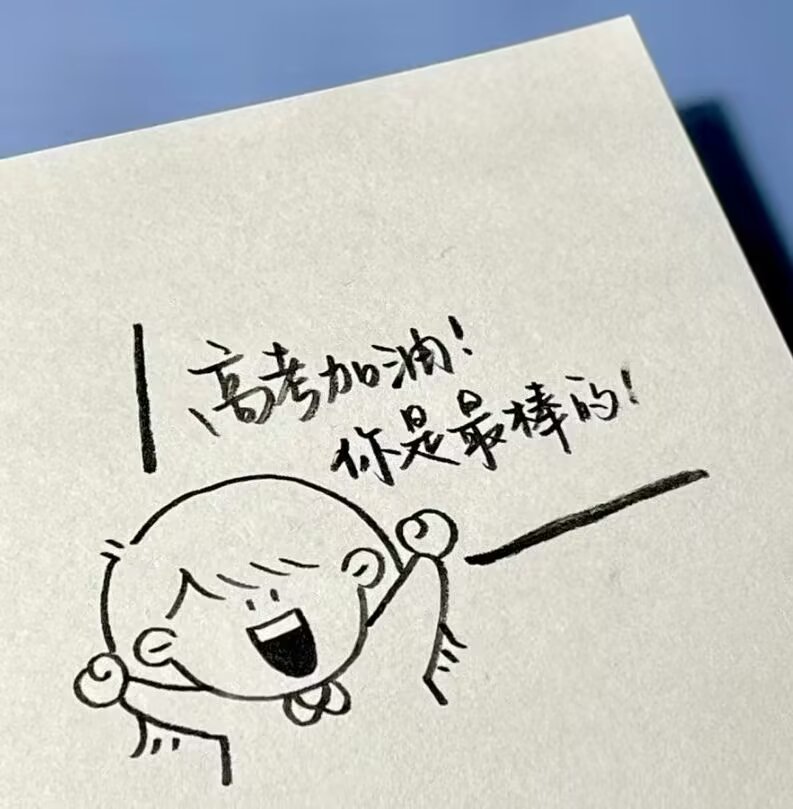 高考加油!
你是最棒的!